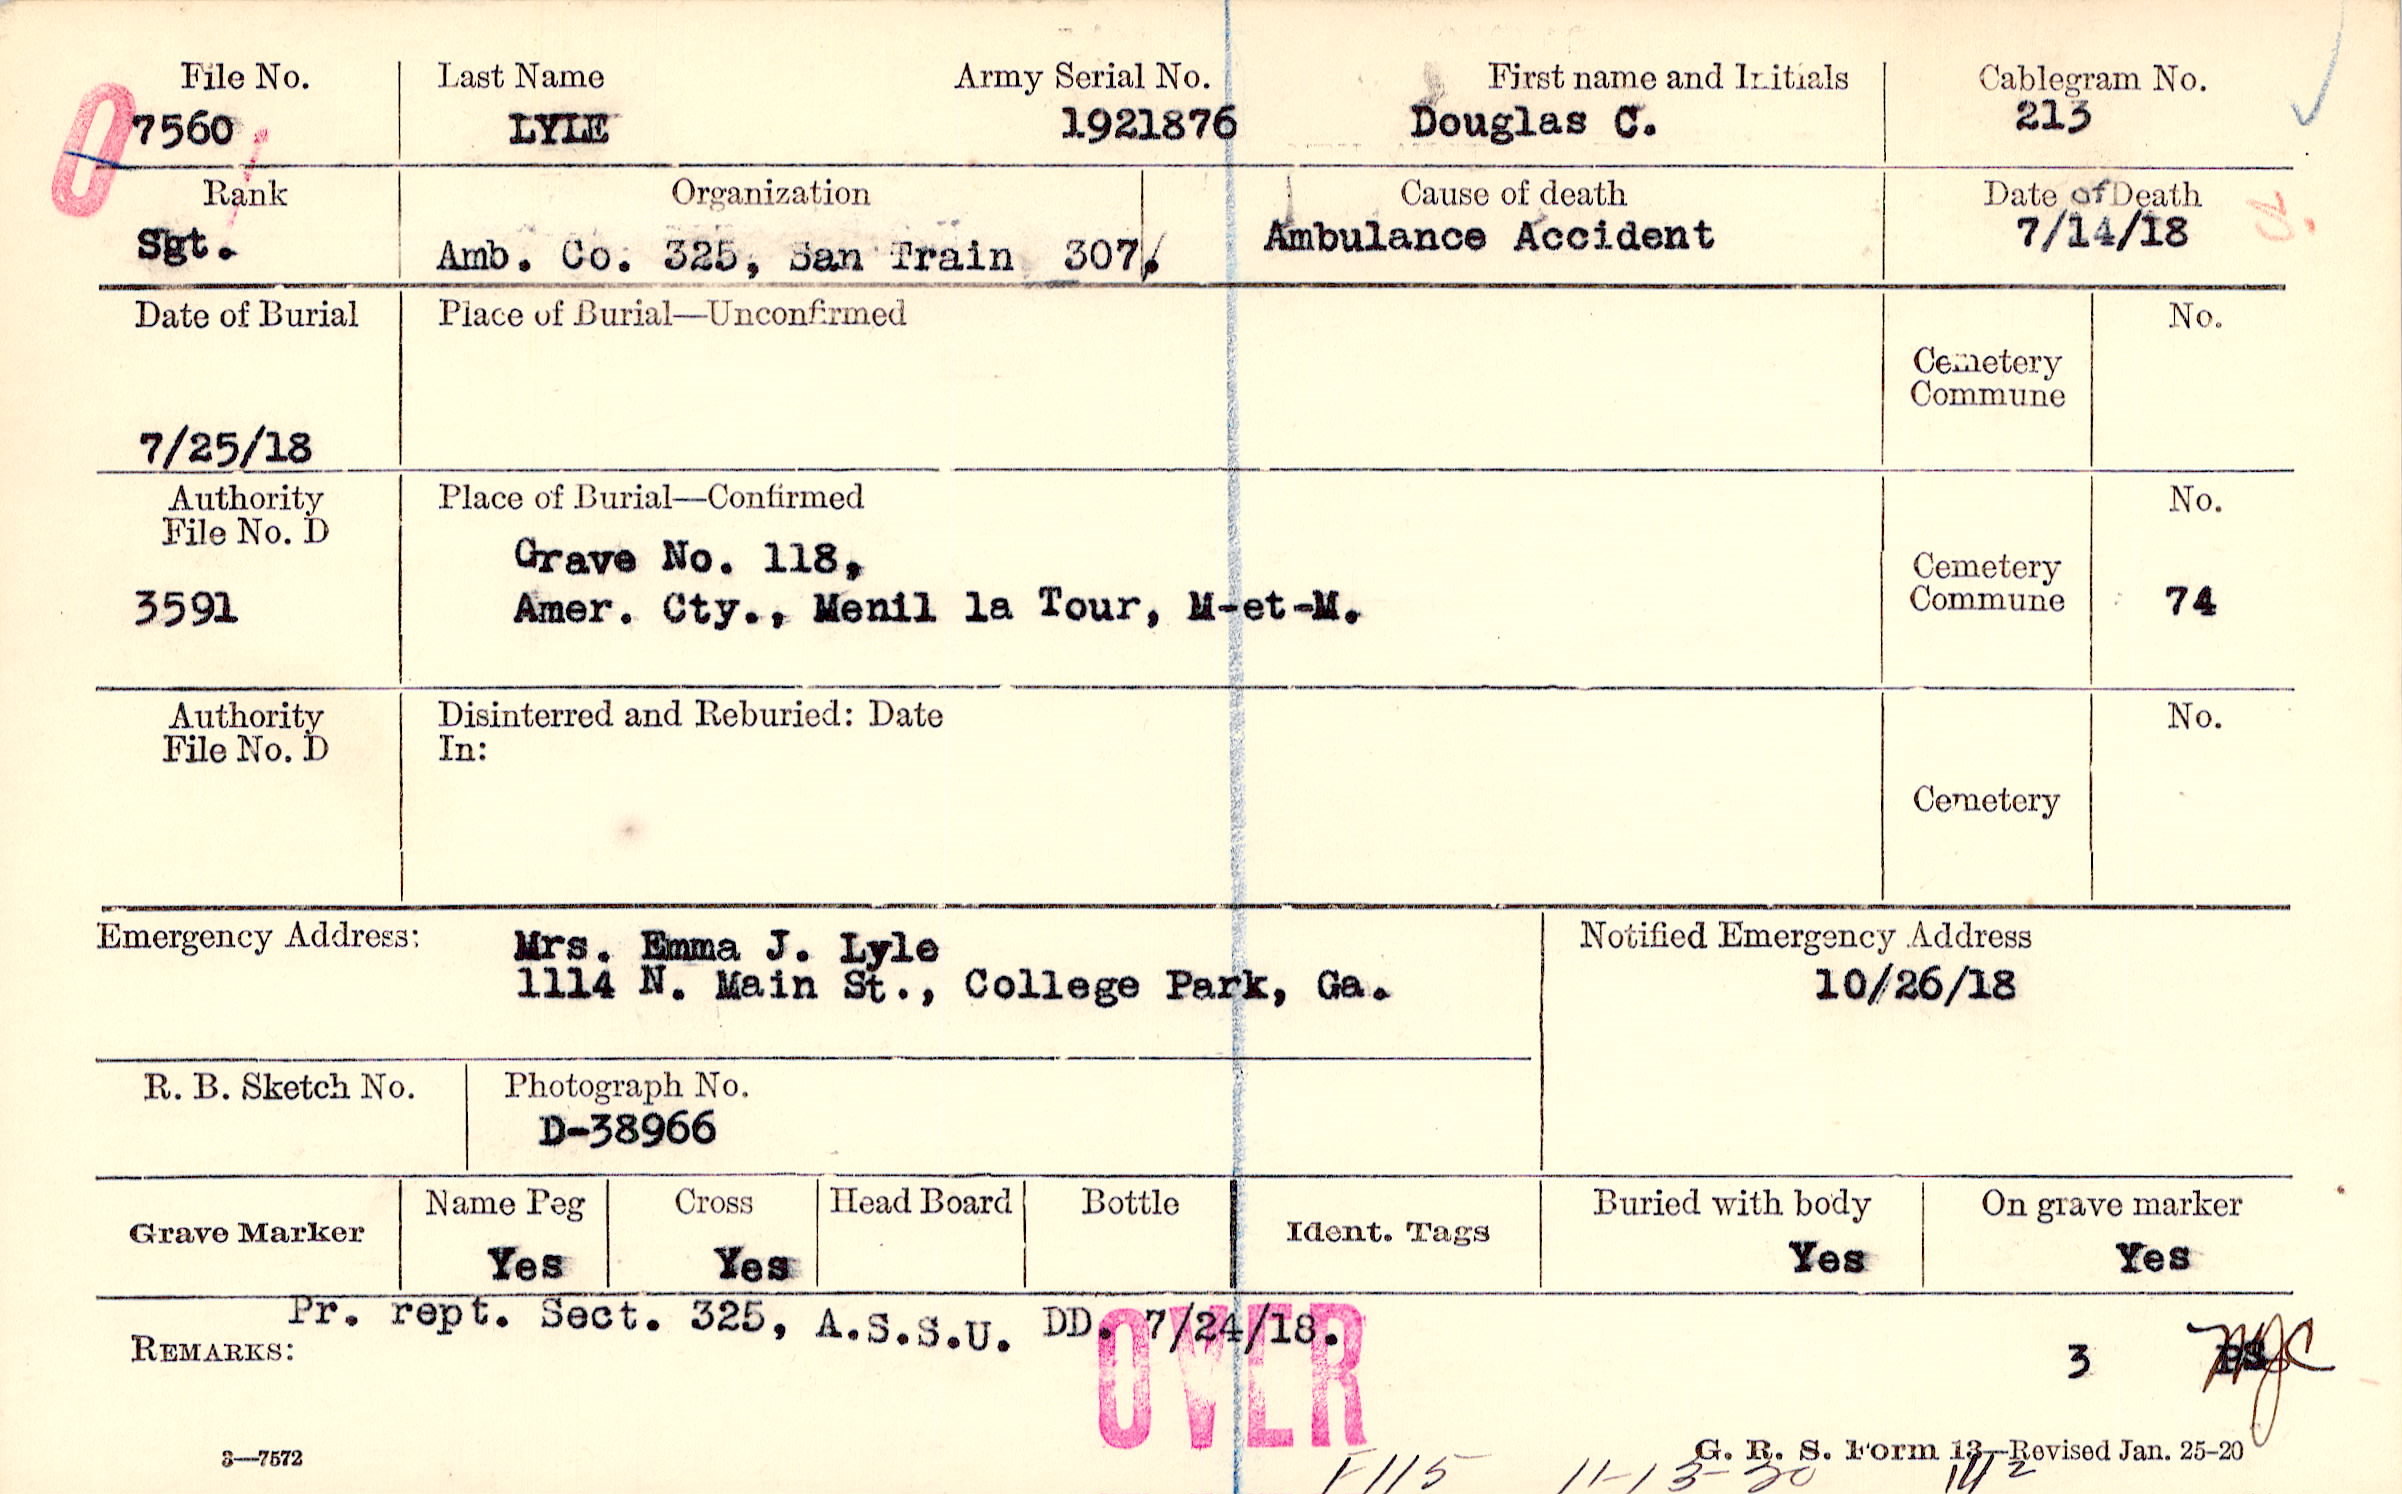 File No. Last Name Army Serial No. First name and Initials Cablegram No.
7560 LYLE 1921876 Douglas C. 213
Rank Organization Cause of death Date of Death
Sgt. Amb. Co. 325, San Train 307. Ambulance Accident 7/14/18
Date of Burial Place of Burial—Unconfirmed No.
Cemetery
Commune
7/25/18
Authority Place of Burial—Confirmed No.
File No. D
Grave No. 118,
Cemetery
3591 Amer. Cty., Menil la Tour, M-et-M. Commune 74
Authority Disinterred and Reburied: Date No.
File No. D In:
Cemetery
Emergency Address: Mrs. Emma J. Lyle Notified Emergency Address
1114 N. Main St., College Park, Ga. 10/26/18
R. B. Sketch No. Photograph No.
D-38966
Grave Marker Name Peg Cross Head Board Bottle Ident. Tags Buried with body On grave marker
Yes Yes Yes Yes
Pr. rept. Sect. 325, A.S.S.U. DD. 7/24/18.
REMARKS: 3
OVER
3—7572 G. R. S. Form 13—Revised Jan. 25-20
11-13-20